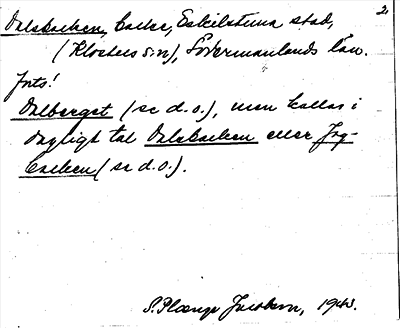 2.
Dalsbacken, backe, Eskilstuna stad,
(Klosters s:n), Södermanlands län.
Forts!
Dalberget (se d.o.), men kallas i
dagligt tal Dalsbacken eller
backen (se d.o.).
S. Jacobson, 1943.